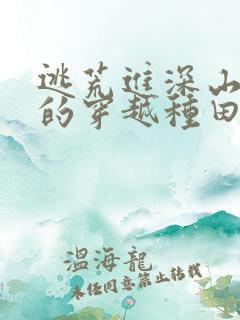 逃荒進深山
的穿越種田
溫海龍
未經同意禁止轉載